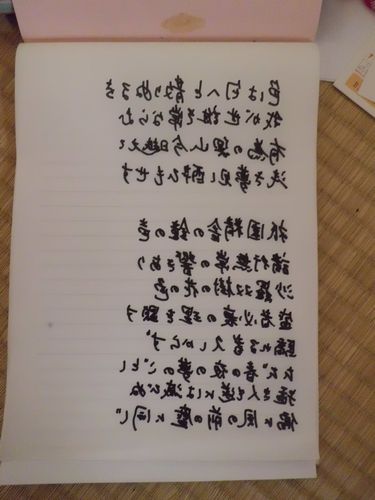 色は匂へと散りぬるを
我が世誰そ常ならむ
有為の奥山今日越えて
浅き夢見し酔ひもせす
祇園精舎の鐘の声
諸行無常の響きあり
沙羅双樹の花の色
盛者必衰の理を顕す
驕れる者久しからず
ただ春の夜の夢のごとし
猛き人も遂には滅びぬ
偏に風の前の塵に同じ